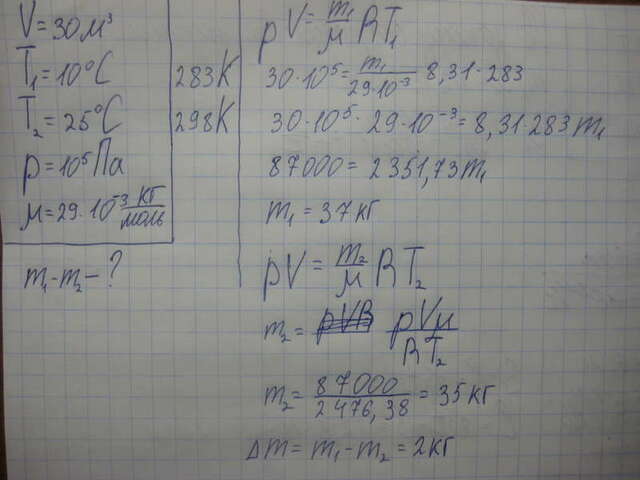 V = 30 м³
T₁ = 10°C 283K
T₂ = 25°C 298K
p = 10⁵ Па
μ = 29·10⁻³ кг/моль
m₁ - m₂ - ?
pV = m₁/μ RT₁
30·10⁵ = m₁/29·10⁻³ 8,31·283
30·10⁵·29·10⁻³ = 8,31·283 m₁
87000 = 2351,73 m₁
m₁ = 37 кг
pV = m₂/μ RT₂
m₂ = pVμ/RT₂
m₂ = 87000/2476,38 = 35 кг
Δm = m₁ - m₂ = 2 кг